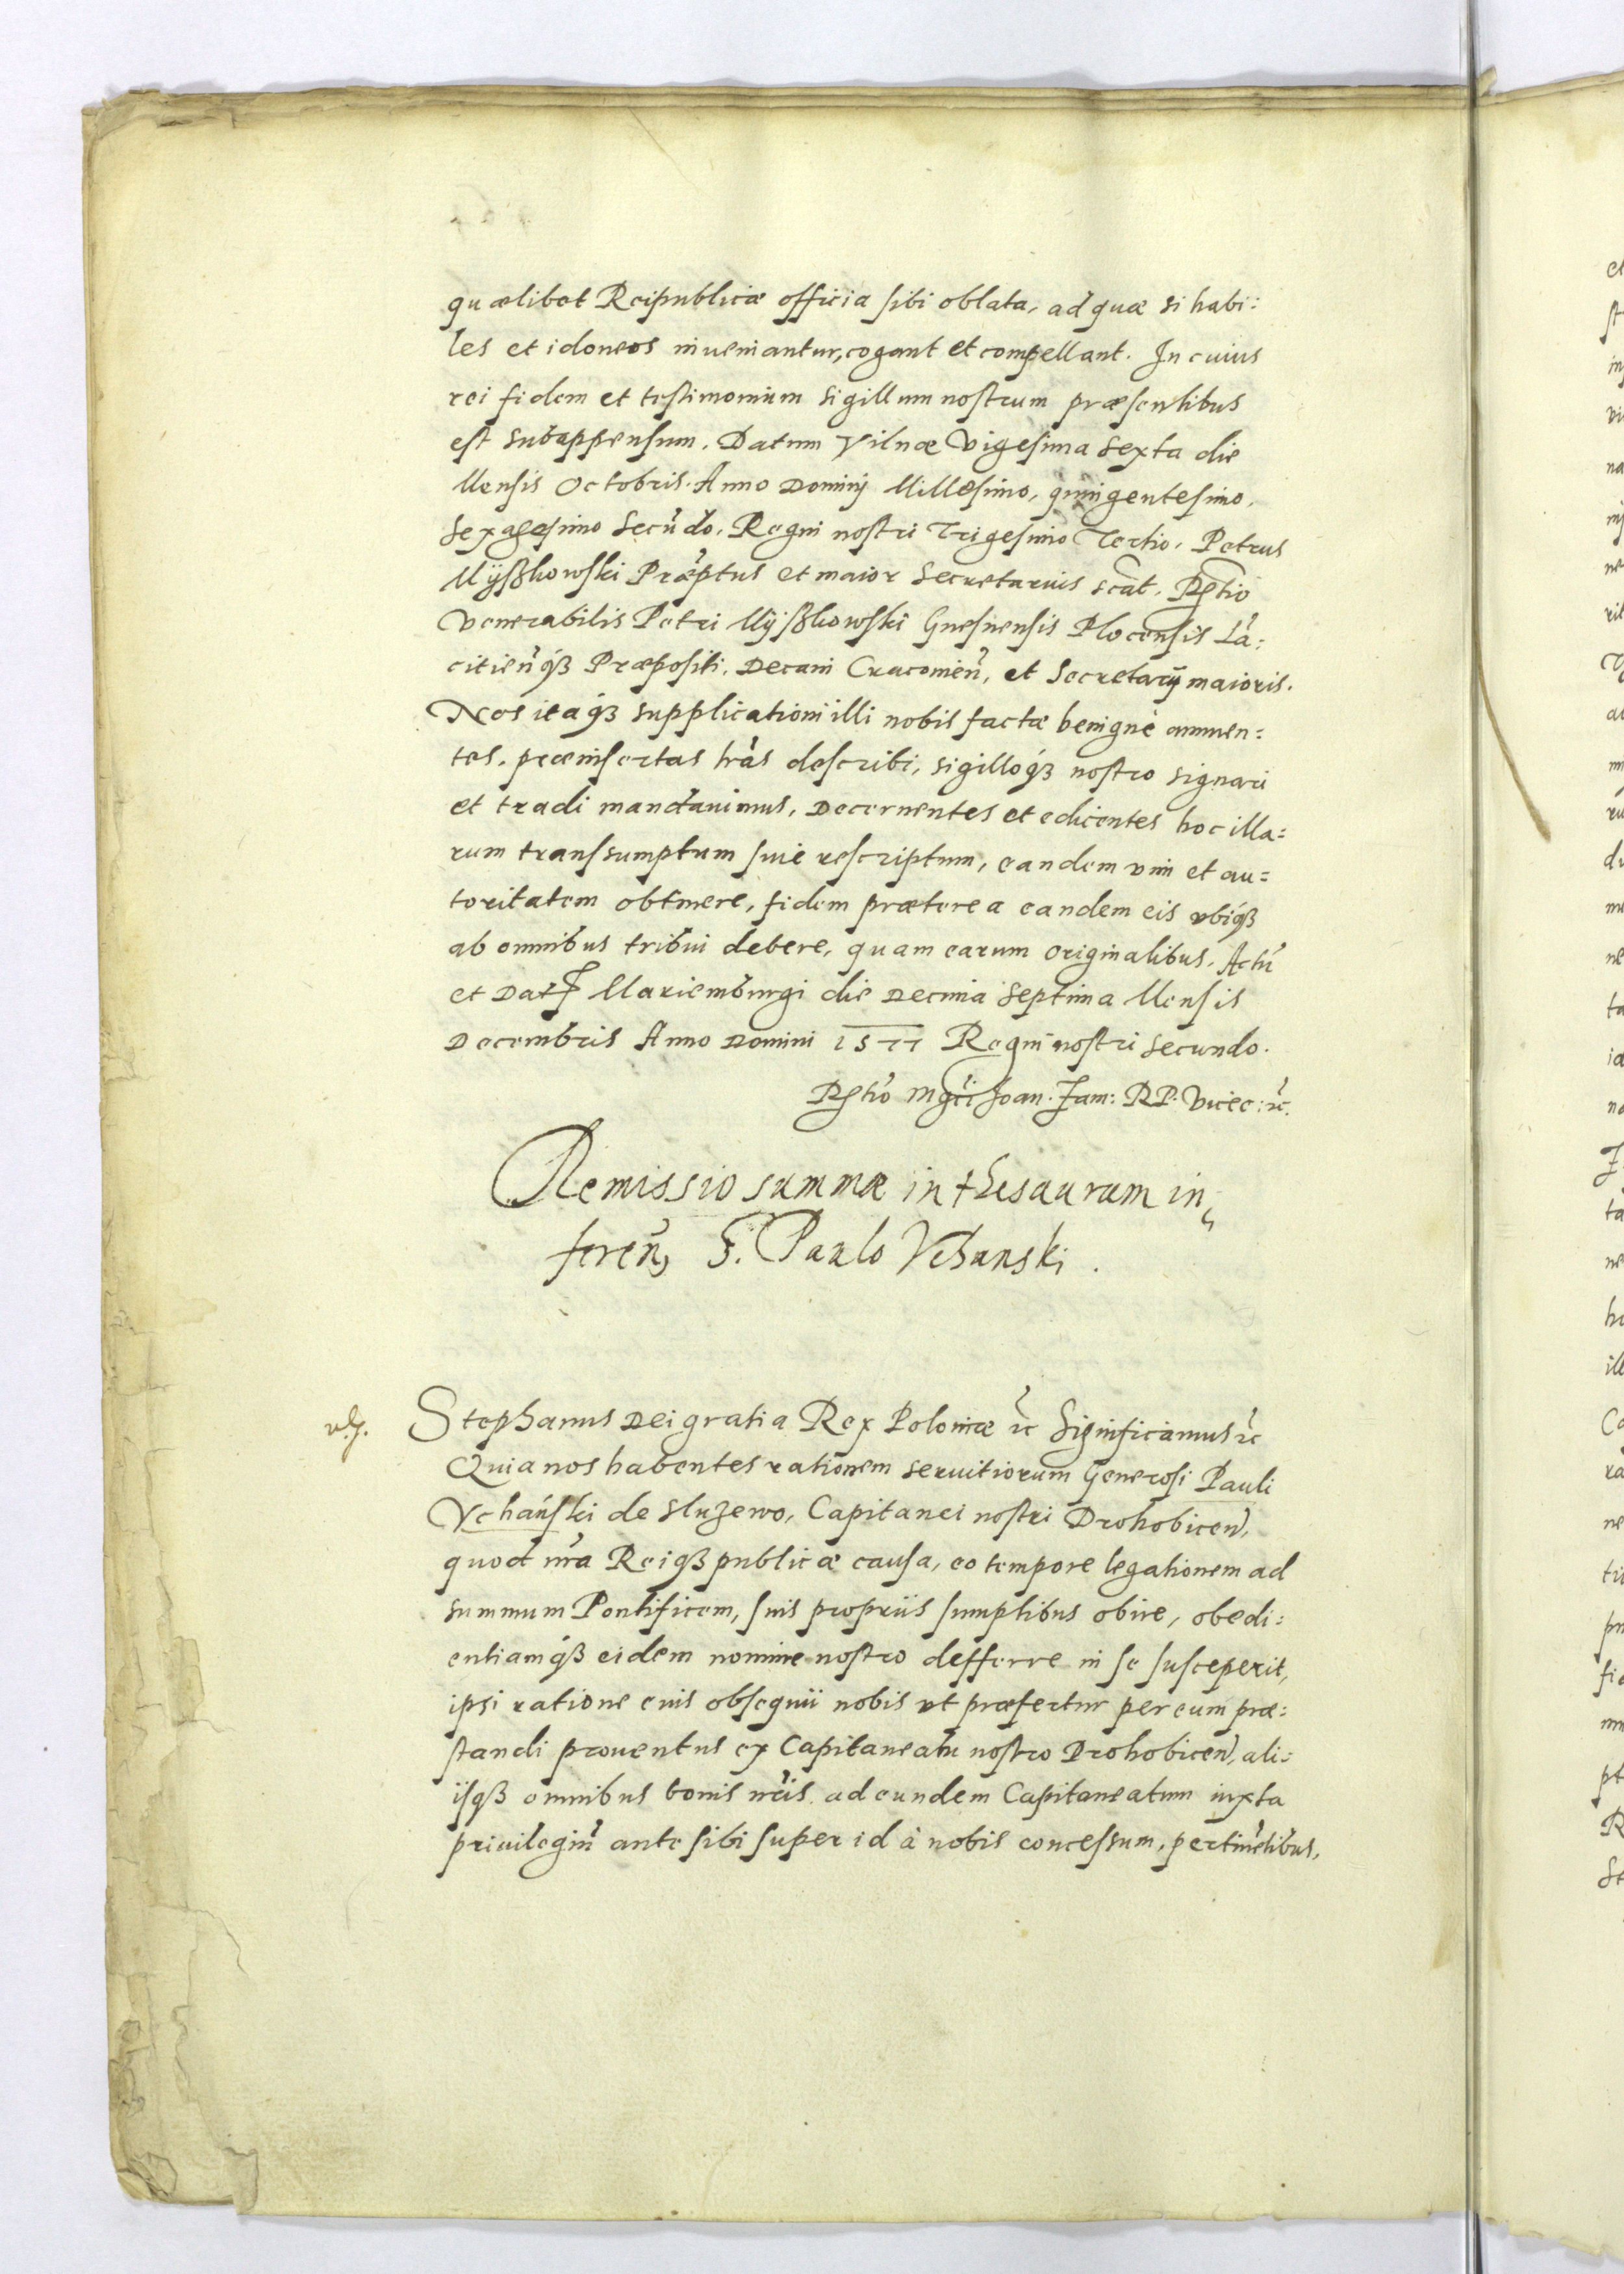 quælibet Reipublicæ officia sibi oblata, ad quæ si habi:
les et idoneos inueniantur, cogant et compellant. In cuius
rei fidem et testimonium sigillum nostrum præsentibus
est subappensum. Datum Vilnæ Vigesima Sexta die
Mensis Octobris. Anno Dominij Millesimo, quingentesimo,
Sexagesimo Secūdo. Regni nostri Trigesimo Tertio. Petrus
Mÿßkowski Præptus et maior Secretarius scāt. Rõtio
Venerabilis Petri Mÿßkowski Gnesnensis Plocensis Lã:
citien̄qȝ Præpositi, Decani Cracouien̄, et Secretarÿ maioris.
Nos itaqȝ supplicationi illi nobis factæ benignè annuen=
tes, præinsertas lrãs describi, sigilloqȝ nostro signari
et tradi mandauimus, Decernentes et edicentes hoc illa=
rum transsumptum siue rescriptum, eandem vim et au=
toritatem obtinere, fidem præterea eandem eis vbiqȝ
ab omnibus tribui debere, quam earum originalibus. Actū
et Dat Mariemburgi die Decima Septima Mensis
Decembris Anno Domini 1577 Regni nostri Secundo.
Rõtio Mgci Joan. Zam: R P. Vicec: ꝛc.
Remissio summæ in thesaurum in,
feren̄, G. Paulo Vchanski.
Stephanus Dei gratia Rex Poloniæ ꝛc Significamus ꝛc
Quia nos habentes rationem seruitiorum Generosi Pauli
Vchański de Sluzewo, Capitanei nostri Drohobicen̄,
quod nrã Reiqȝ publicæ causa, eo tempore legationem ad
summum Pontificem, suis propriis sumptibus obire, obedi:
entiamqȝ eidem nomine nostro defferre in se susceperit,
ipsi ratione eius obsequii nobis vt præfertur per eum præ:
standi prouentus ex Capitaneatu nostro Drohobicen̄, ali:
isqȝ omnibus bonis nrĩs ad eundem Capitaneatum iuxta
priuilegiū ante sibi super id à nobis concessum, pertinētibus,